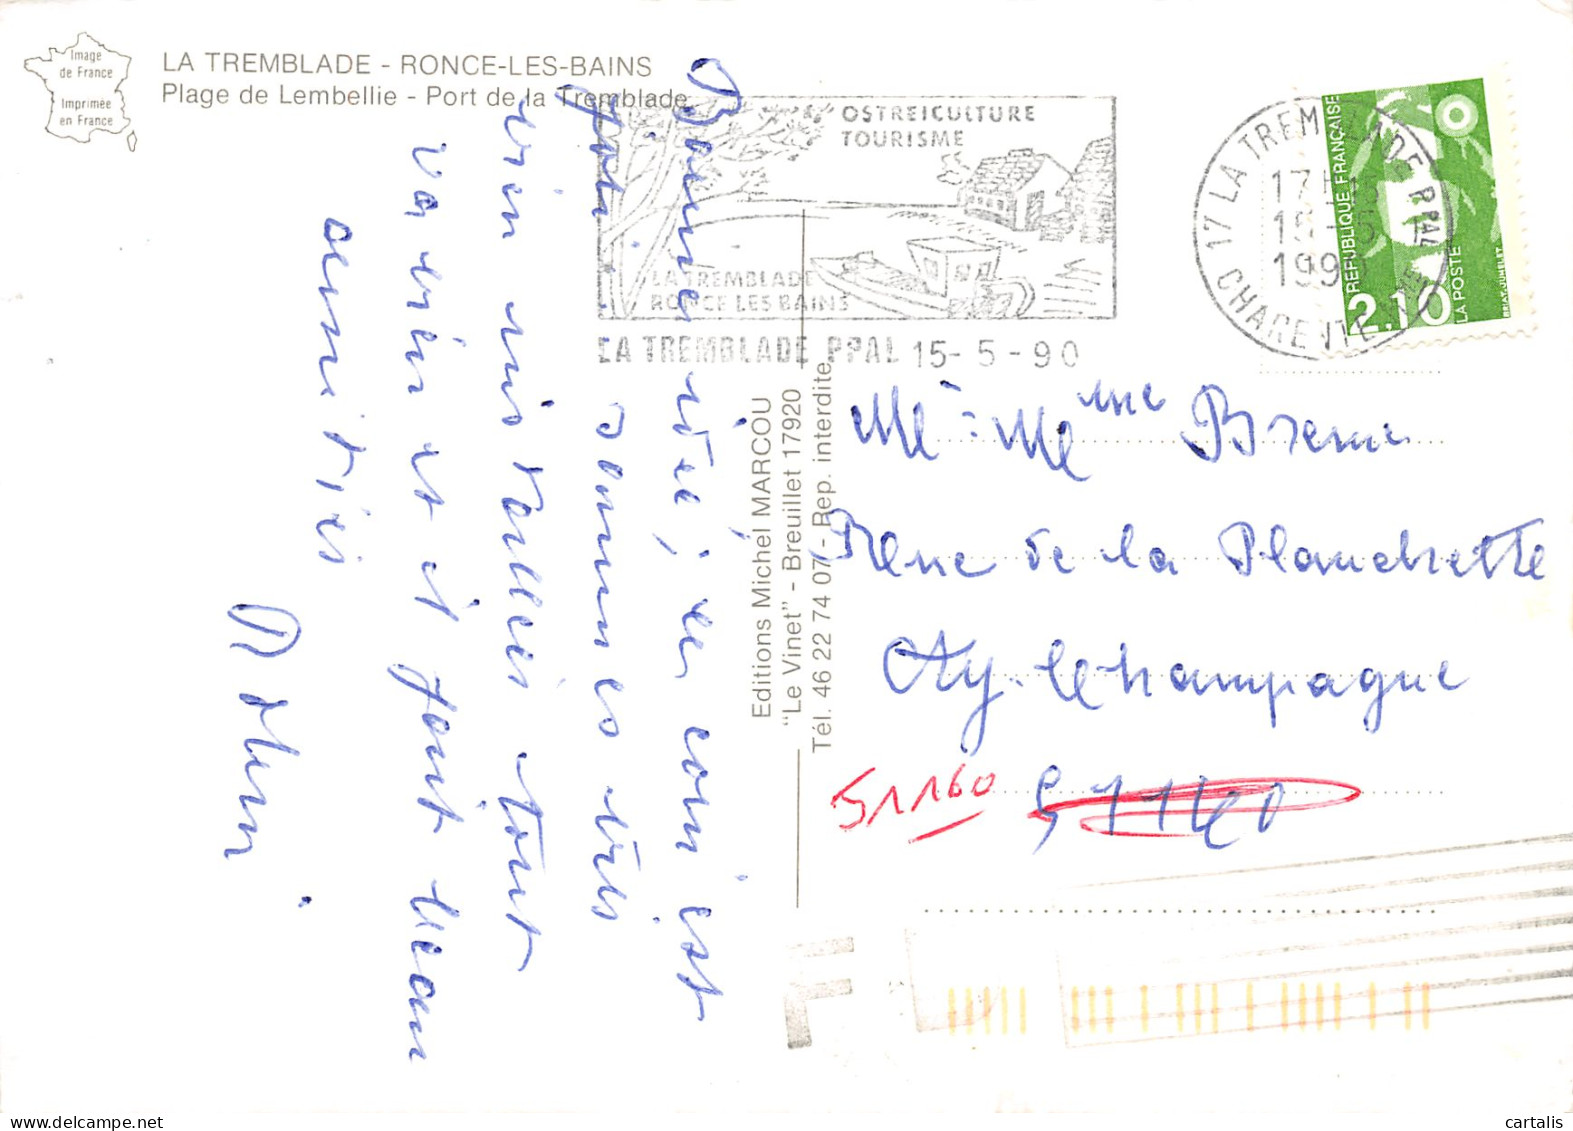 Image
de France
Imprimée
en France
LA TREMBLADE - RONCE-LES-BAINS
Plage de Lembellie - Port de la Tremblade
OSTREICULTURE
TOURISME
LA TREMBLADE
RONCE LES BAINS
LA TREMBLADE PPAL 15-5-90
17 LA TREMBLADE PPAL
CHARENTE MME
1990
REPUBLIQUE FRANÇAISE
2,10
LA POSTE
BRIAT-JUMELET
Bonne idée, le coin est
joli sommes très
bien installés tout
va bien et il fait beau
amitiés
Editions Michel MARCOU
"Le Vinet" - Breuillet 17920
Tél. 46 22 74 07 - Rep. interdite
Mr : Mme
Rue de la Planchette
Ay. Champagne
51160
cartalis
delcampe.net